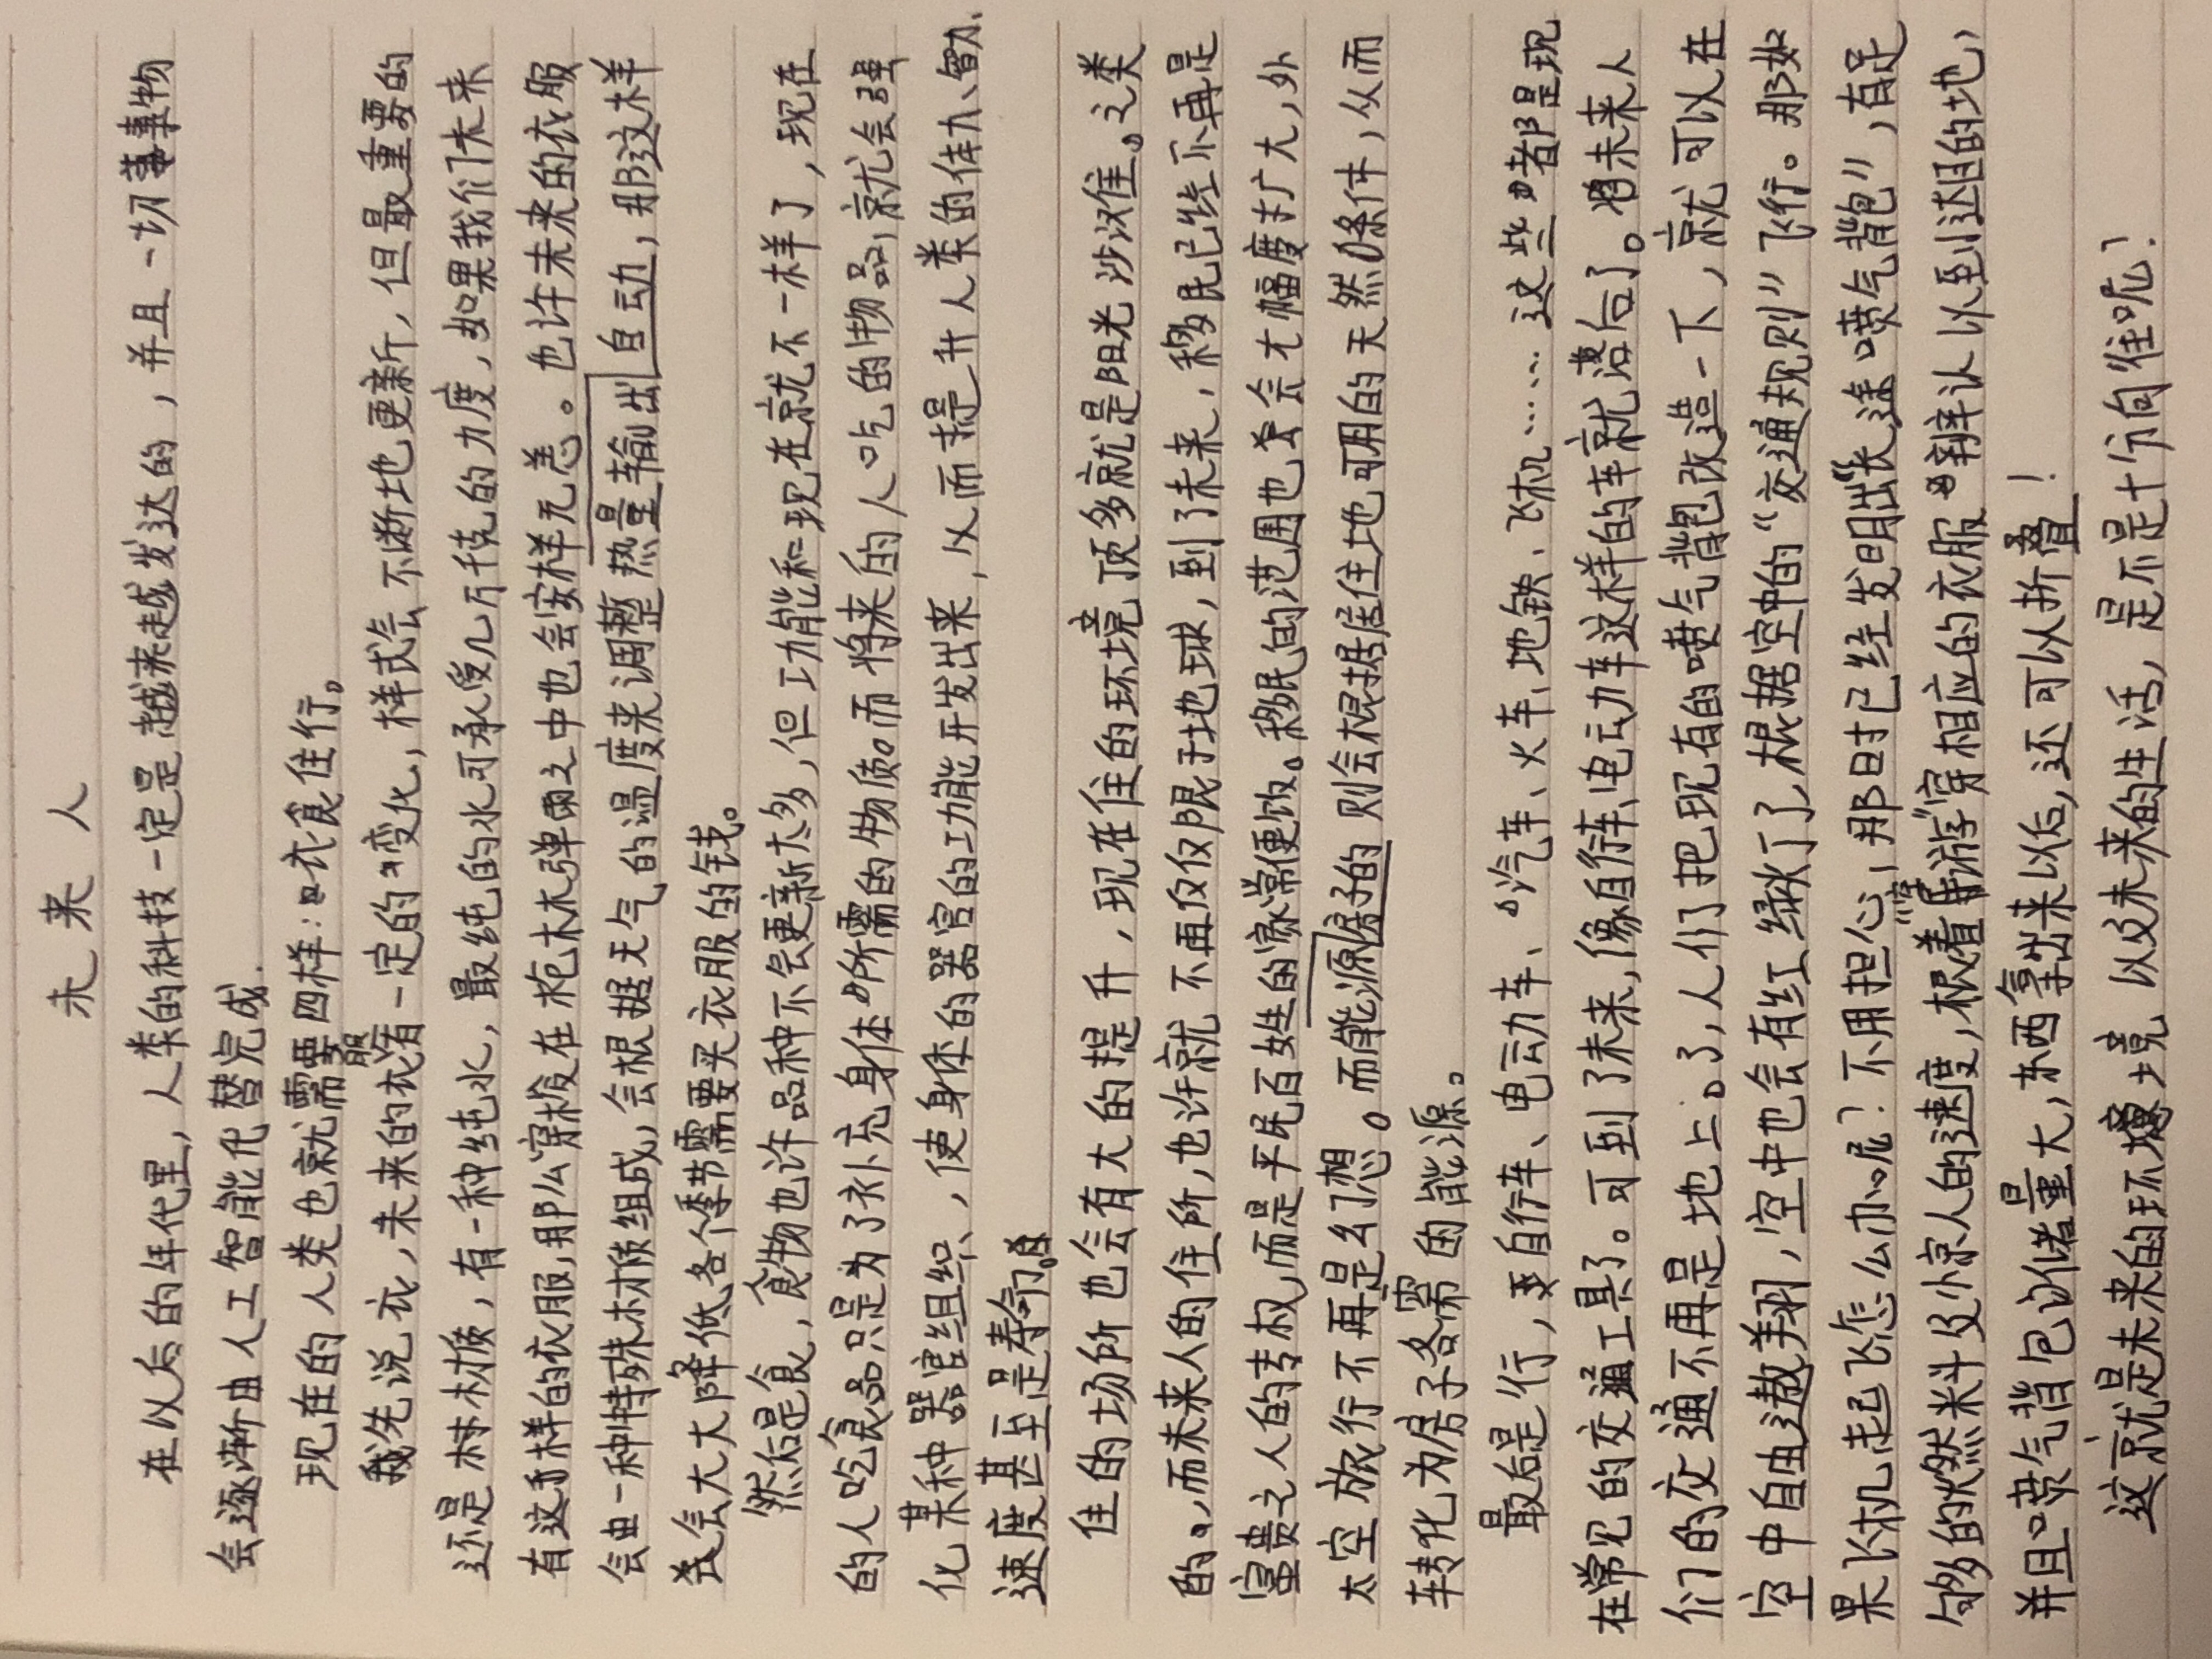 未来人
在以后的年代里，人类的科技一定是越来越发达的，并且一切事物
会逐渐由人工智能代替完成.
现在的人类也就需要四样：衣食住行。
我先说衣，未来的衣服有一定的变化，样式会不断地更新，但最重要的
还是材质，有一种纯水，最纯的水可承受几万千克的力度，如果我们未来
有这样的衣服，那么穿梭在枪林弹雨之中也会安样无恙。也许未来的衣服
会由一种特殊材质组成，会根据天气的温度来调整热量输出自动，那这样
会大大降低各个季节需要买衣服的钱。
然后是食，食物也许品种不会更新太多，但功能和现在就不一样了，现在
的人吃食品只是为了补充身体所需的物质。而将来的人吃的物品，就会强
化某种器官组织，使身体的器官的功能开发出来，从而提升人类的体力、智力、
速度甚至是寿命。
住的场所也会有大的提升，现在住的环境顶多就是阳光沙滩。之类
的。而未来人的住所，也许就不再仅仅限于地球，到了未来，移民已经不再是
富贵之人的专权，而是平民百姓的家常便饭。移民的范围也会大幅度扩大，外
太空旅行不再是幻想。而能源房子的则会根据居住地可用的天然条件，从而
转化为房子各需的能源。
最后是行，自行车、电动车、汽车、火车、地铁、飞机……这些都是现
在常见的交通工具了。可到了未来，像自行车、电动车这样的车就落后了。未来人
们的交通不再是地上。了，人们把现有的喷气背包改造一下，就可以在
空中自由遨翔，空中也会有红绿灯了，根据空中的“交通规则”飞行。那如
果飞机起飞怎么办呢？不用担心，那时已经发明出“长途喷气背包”，有足
够的燃料及惊人的速度，根着“穿游”穿相应的衣服辩认以到达目的地，
并且喷气背包训储量大，东西拿出来以后，还可以折叠！
这就是未来的环境以及未来的生活，是不是十分向往呢？